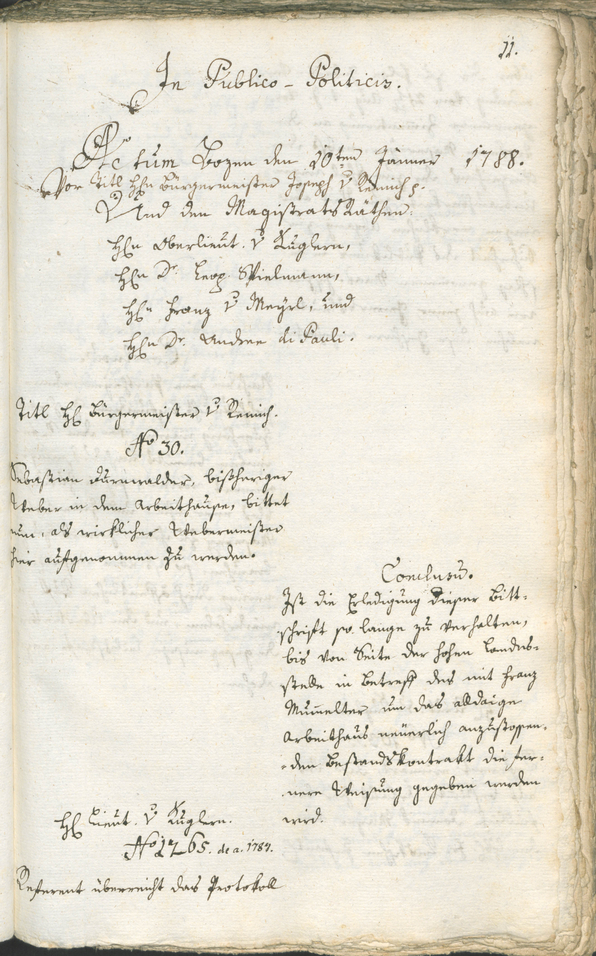 11.
In Publico-Politicis.
Actum Bozen den 10ten Jänner 1788.
Vor Titl Hℏ Bürgermeister Joseph v Remich p.
Und den Magistrats Räthen:
Hℏn Oberlieut. v Kuglern,
Hℏn Dr. Leop. Spielmann,
Hℏn Franz v Mayrl, und
Hℏn Dr. Andree di Pauli.
Titl Hℏ Bürgermeister v Remich.
No 30.
Sebastian Durnwalder, bißheriger
Weber in dem Arbeithause, bittet
nun, als wirklicher Webermeister
hier aufgenommen zu werden.
Conclusum.
Ist die Erledigung dieser Bitt-
schrift so lange zu verhalten,
bis von Seite der hohen Landes-
stelle in Betreff des mit Franz
Mumelter um das alldaige
Arbeithaus neuerlich anzustossen-
den Bestandskontrakt die fer-
nere Weisung gegeben werden
wird.
Hℏ Lieut. v Kuglern.
No 1265. de a. 1787.
Referent überreicht das Protokoll